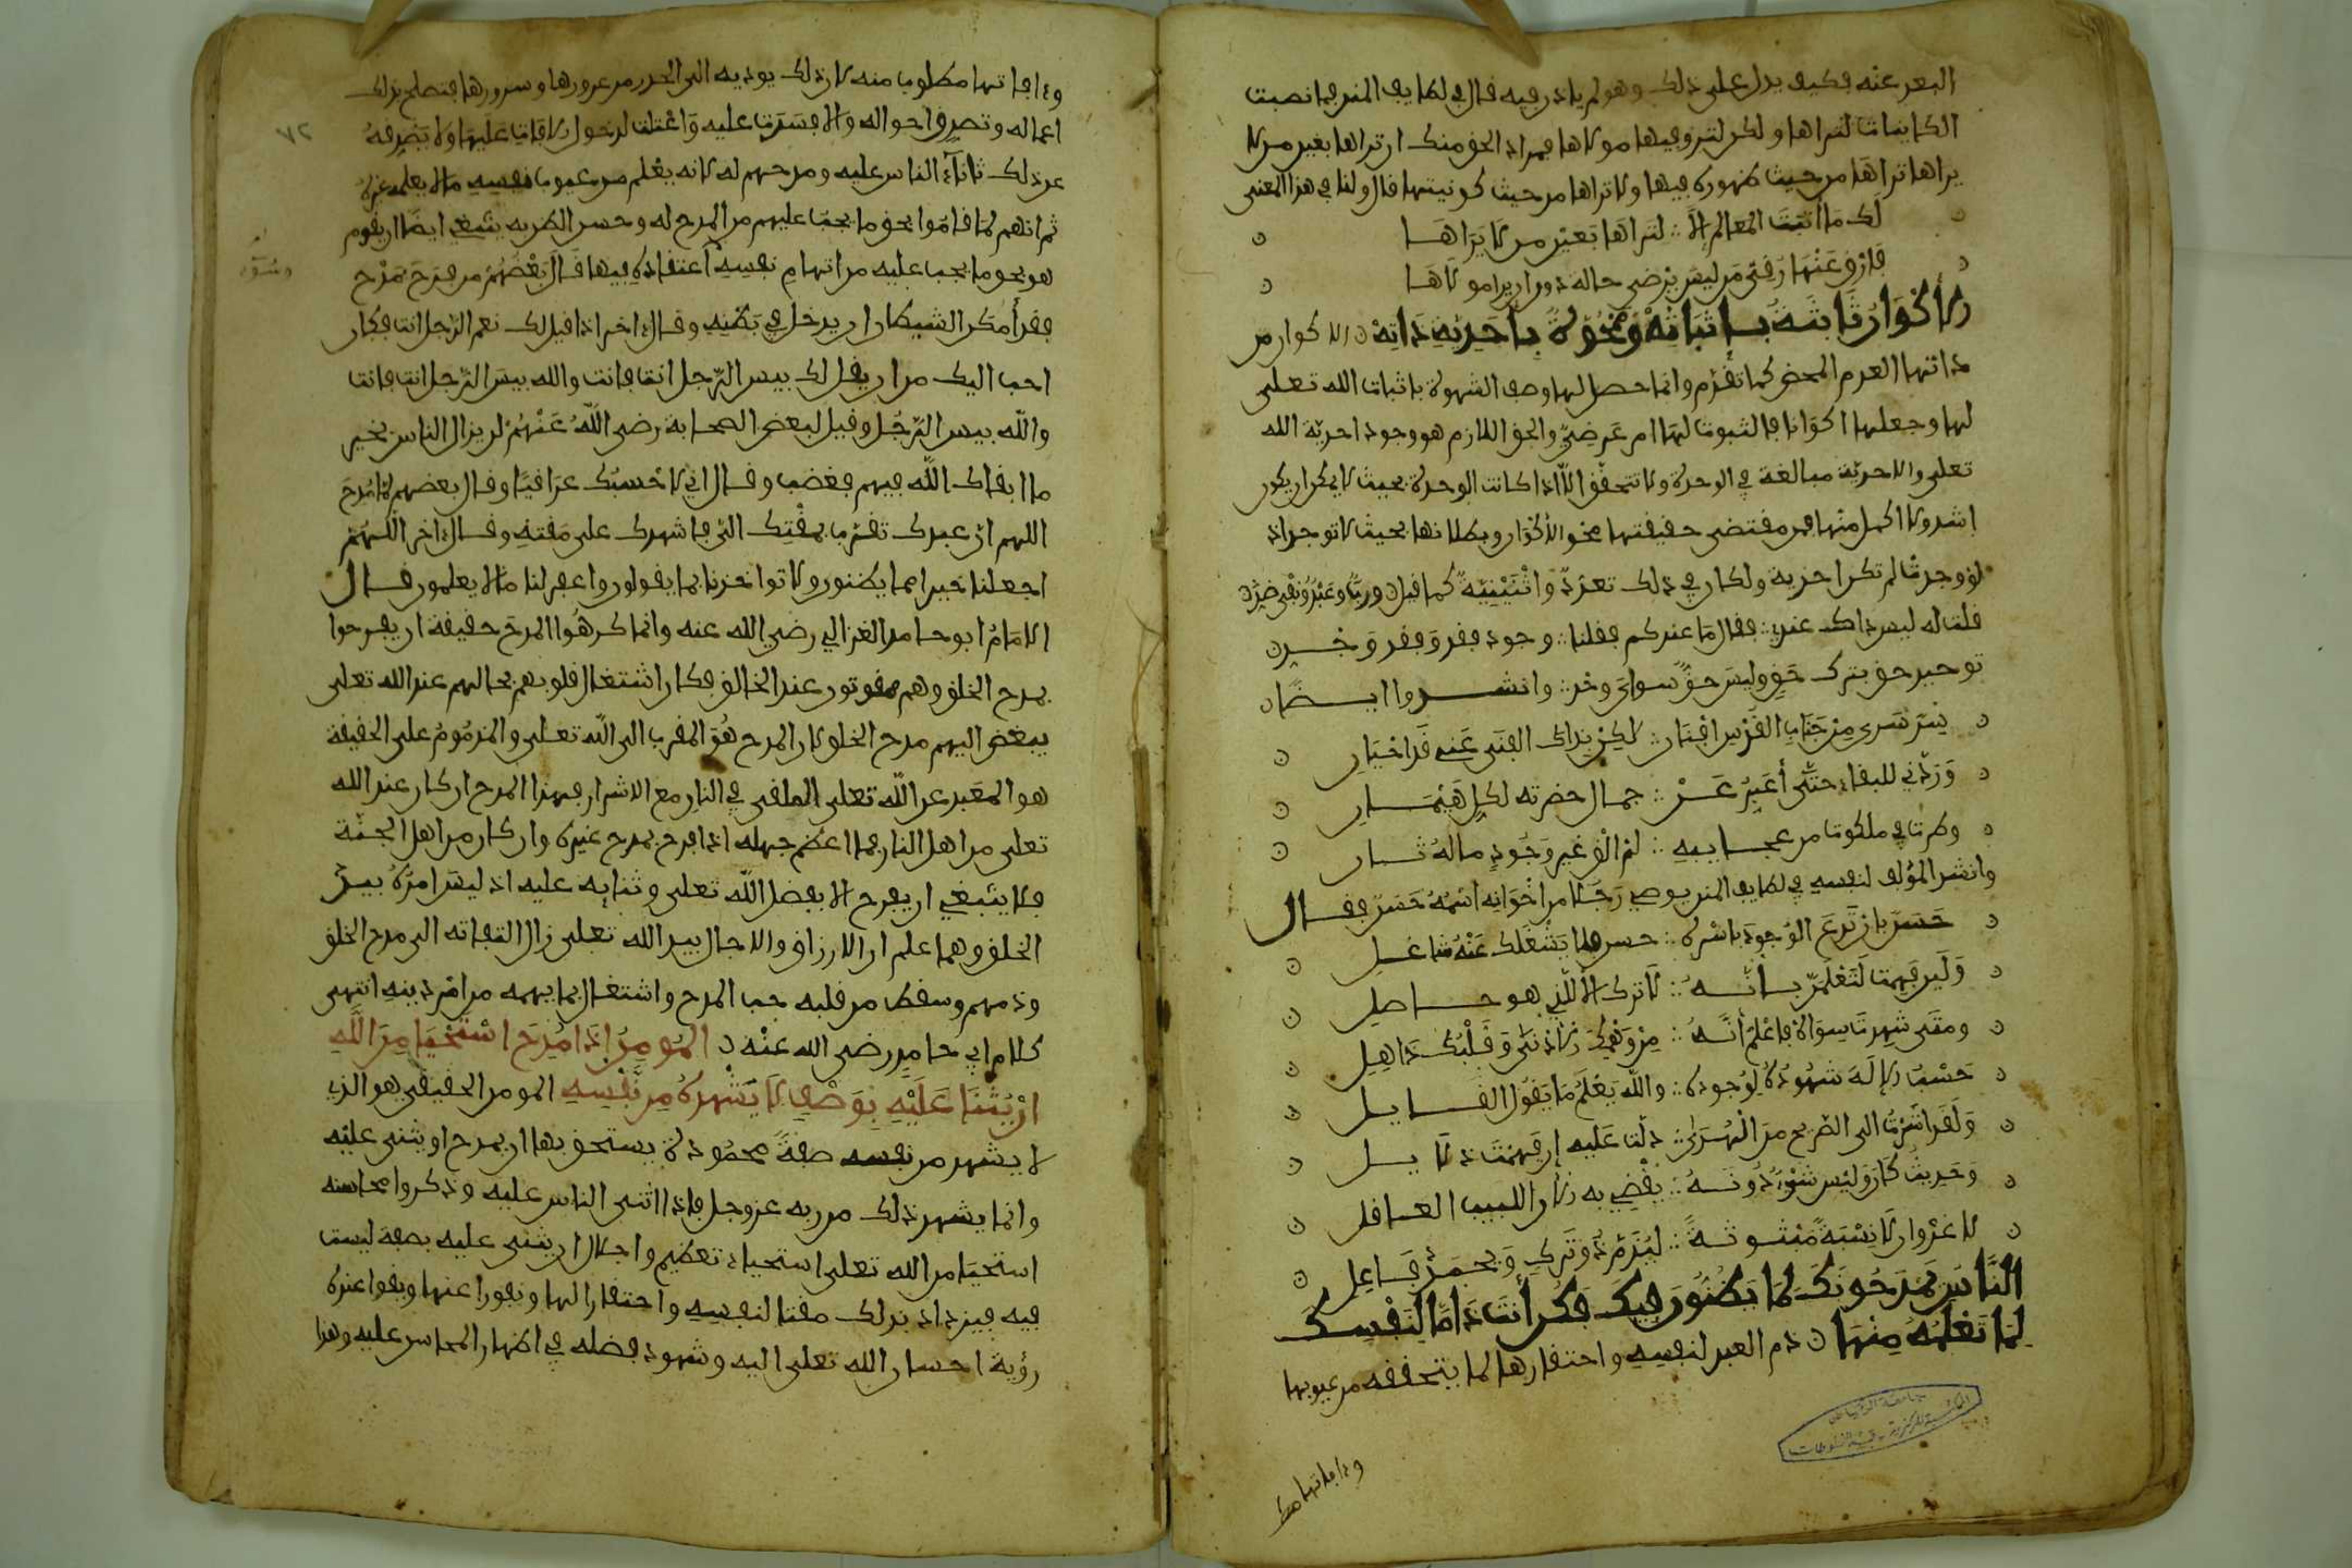 البعد عنه فكيف يدل على ذلك وهو لم ياذن فيه قال في لطايف المنن فما نصبت
الكاينات لتراها ولكن لترى فيها مولاها فمراد الحق منك ان تراها بعين من لا
يراها تراها من حيث ظهوره فيها ولا تراها من حيث كونيتها قال ولنا في هذا المعنى
لك ما اثبتت المعالم الا ∴ لتراها بعين من لا يراها
فارق عنها رقي من ليس يرضى حالة دون ان يرى مولاها
الاكوان ثابتة باثباته وممحوة باحدية ذاته الاكوان من
ذاتها العدم المحض كما تقدم وانما حصل لها وصف الشهوة باثبات الله تعلى
لها وجعلها اكوانا فالثبوت لها امر عرضي والحق اللازم هو وجود احدية الله
تعلى والاحدية مبالغة في الوحدة ولا تتحقق الا اذا كانت الوحدة بحيث لا يمكن ان يكون
اشد ولا اكمل منها فمن مقتضى حقيقتها محو الاكوان وبطلانها بحيث لا توجد اذ
لو وجدت لم تكن احدية ولكان في ذلك تعدد واثنينية كما قيل رب وعبد ونفي ضد
قلت له ليس ذاك عندي ∴ فقال ما عندكم فقلنا ∴ وجود فقد وفقد وجد
توحيد حق بترك حق وليس حق سواى وحد ∴ وانشدوا ايضا
سر سرى من جناب القدس افناني ∴ لكن بذاك الفنى عني قد احياني
وردني للبقاء حتى أعبر عن ∴ جمال حضرته لكل هيمان
وصرت في ملكوت من عجايبه ∴ لم الق غير وجود ماله ثان
وانشد المؤلف لنفسه في لطايف المنن يوصي رجلا من اخوانه اسمه حسن فقال
حسن بان تدع الوجود باسره ∴ حسن فلا يشغلك عنه شاغل
ولين فهمت لتعلمن بانه ∴ لا ترك الا للذي هو حاصل
ومتى شهدت سواه فاعلم أنه ∴ من وهمك الادنى وقلبك ذاهل
حسب الاله شهوده لوجوده ∴ والله يعلم ما يقول القايل
ولقد اشرت الى الصريح من الهدى ∴ دلت عليه ان فهمت دلايل
وحديث كان وليس شيء دونه ∴ يقضي به الان اللبيب العاقل
لا غرو ان لا نسبة مثبوتة ∴ ليذم ذو ترك ويحمد فاعل
الناس يمدحونك لما يظنون فيك فكن أنت ذاما لنفسك
لما تعلمه منها ذم العبد لنفسه واحتقارها لما يتحققه من عيوبها
وءافاتها مط
جامعة الرياض
المكتبة المركزية - قسم المخطوطات
٧٢
وءافاتها مطلوب منه لان ذلك يوديه الى الحذر من غرورها وسرورها فتصلح بذلك
اعماله وتصدق احواله والا فسدت عليه واعتلت لدخول الافات عليها ولا يصرفه
عن ذلك ثناء الناس عليه ومدحهم له لانه يعلم من عيوب نفسه ما لا يعلمه غيره
ثم انهم لما قاموا بحق ما يجب عليهم من المدح له وحسن الظن به ينبغي ايضا ان يقوم
هو بحق ما يجب عليه من اتهام نفسه اعتقاده فيها قال بعضهم من فرح بمدح
فقد أمكن الشيطان ان يدخل في بطنه وقال ءاخر اذا قيل لك نعم الرجل انت فكان
احب اليك من ان يقال لك بيس الرجل انت فانت والله بيس الرجل انت فانت
والله بيس الرجل وقيل لبعض الصحابة رضي الله عنهم لن يزال الناس بخير
ما ابقاك الله فيهم فغضب وقال اني لاحسبك عراقيا وقال بعضهم لما مدح
اللهم ان عبدك تقرب بمقتك الي فاشهدك على مقته وقال ءاخر اللهم
اجعلنا خيرا مما يظنون ولا تواخذنا بما يقولون واغفر لنا ما لا يعلمون قال
الامام ابو حامد الغزالي رضي الله عنه وانما كرهوا المدح حقيقة ان يفرحوا
بمدح الخلق وهم ممقوتون عند الخالق فكان اشتغال قلوبهم بحالهم عند الله تعلى
يبغض اليهم مدح الخلق لان المدح هو المقرب الى الله تعلى والمذموم على الحقيقة
هو المبعد عن الله تعلى الملقى في النار مع الاشرار فهذا المدح ان كان عند الله
تعلى من اهل النار فما اعظم جهله اذا فرح بمدح غيره وان كان من اهل الجنة
فلا ينبغي ان يفرح الا بفضل الله تعلى وثنايه عليه اذ ليس امره بيد
الخلق ومهما علم ان الارزاق والاجال بيد الله تعلى زال التفاته الى مدح الخلق
وذمهم وسقط من قلبه حب المدح واشتغال بما يهمه من امر دينه انتهى
كلام ابي حامد رضي الله عنه المومن اذا مدح استحيا من الله
ان يثنا عليه بوصف لا يشهده من نفسه المومن الحقيقي هو الذي
لا يشهد من نفسه صفة محمودة يستحق بها ان يمدح او يثنى عليه
وانما يشهد ذلك من ربه عز وجل فاذا اثنى الناس عليه وذكروا محاسنه
استحيا من الله تعلى استحياء تعظيم واجلال ان يثنى عليه بصفة ليست
فيه فيزداد بذلك مقتا لنفسه واحتقارا لها ونفورا عنها ويقوا عنده
رؤية احسان الله تعلى اليه وشهود فضله في اظهار المحاسن عليه وهذا